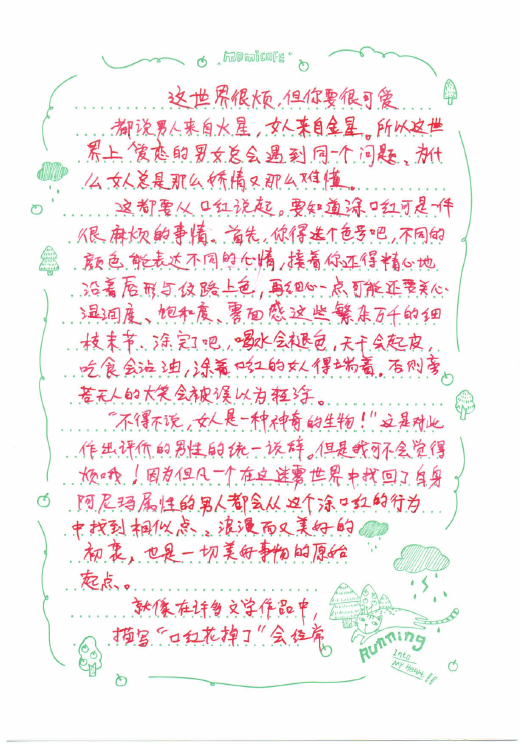 momicafe
这世界很烦,但你要很可爱
都说男人来自火星,女人来自金星。所以这世
界上恋爱的男女总会遇到同一个问题、为什
么女人总是那么矫情又那么难懂。
这都要从口红说起。要知道涂口红可是一件
很麻烦的事情。首先,你得选个色号吧,不同的
颜色能表达不同的心情,接着你还得精心地
沿着唇形与纹路上色,再细心一点可能还要关心
湿润度、饱和度、雾面感这些繁杂万千的细
枝末节、涂完了吧,喝水会褪色,天干会起皮,
吃食会沾油,涂着口红的女人得端着。否则旁
若无人的大笑会被误以为粗俗。
“不得不说,女人是一种神奇的生物!”这是对此
作出评价的男性的统一说辞。但是我可不会觉得
烦哦!因为但凡一个在这迷雾世界中找回了自身
阿尼玛属性的男人都会从这个涂口红的行为
中找到相似点、浪漫而又美好的
初衷,也是一切美好事物的原始
起点、。
就像在许多文学作品中,
描写“口红花掉了”会经常
RUNNING
Into
My Heart!!